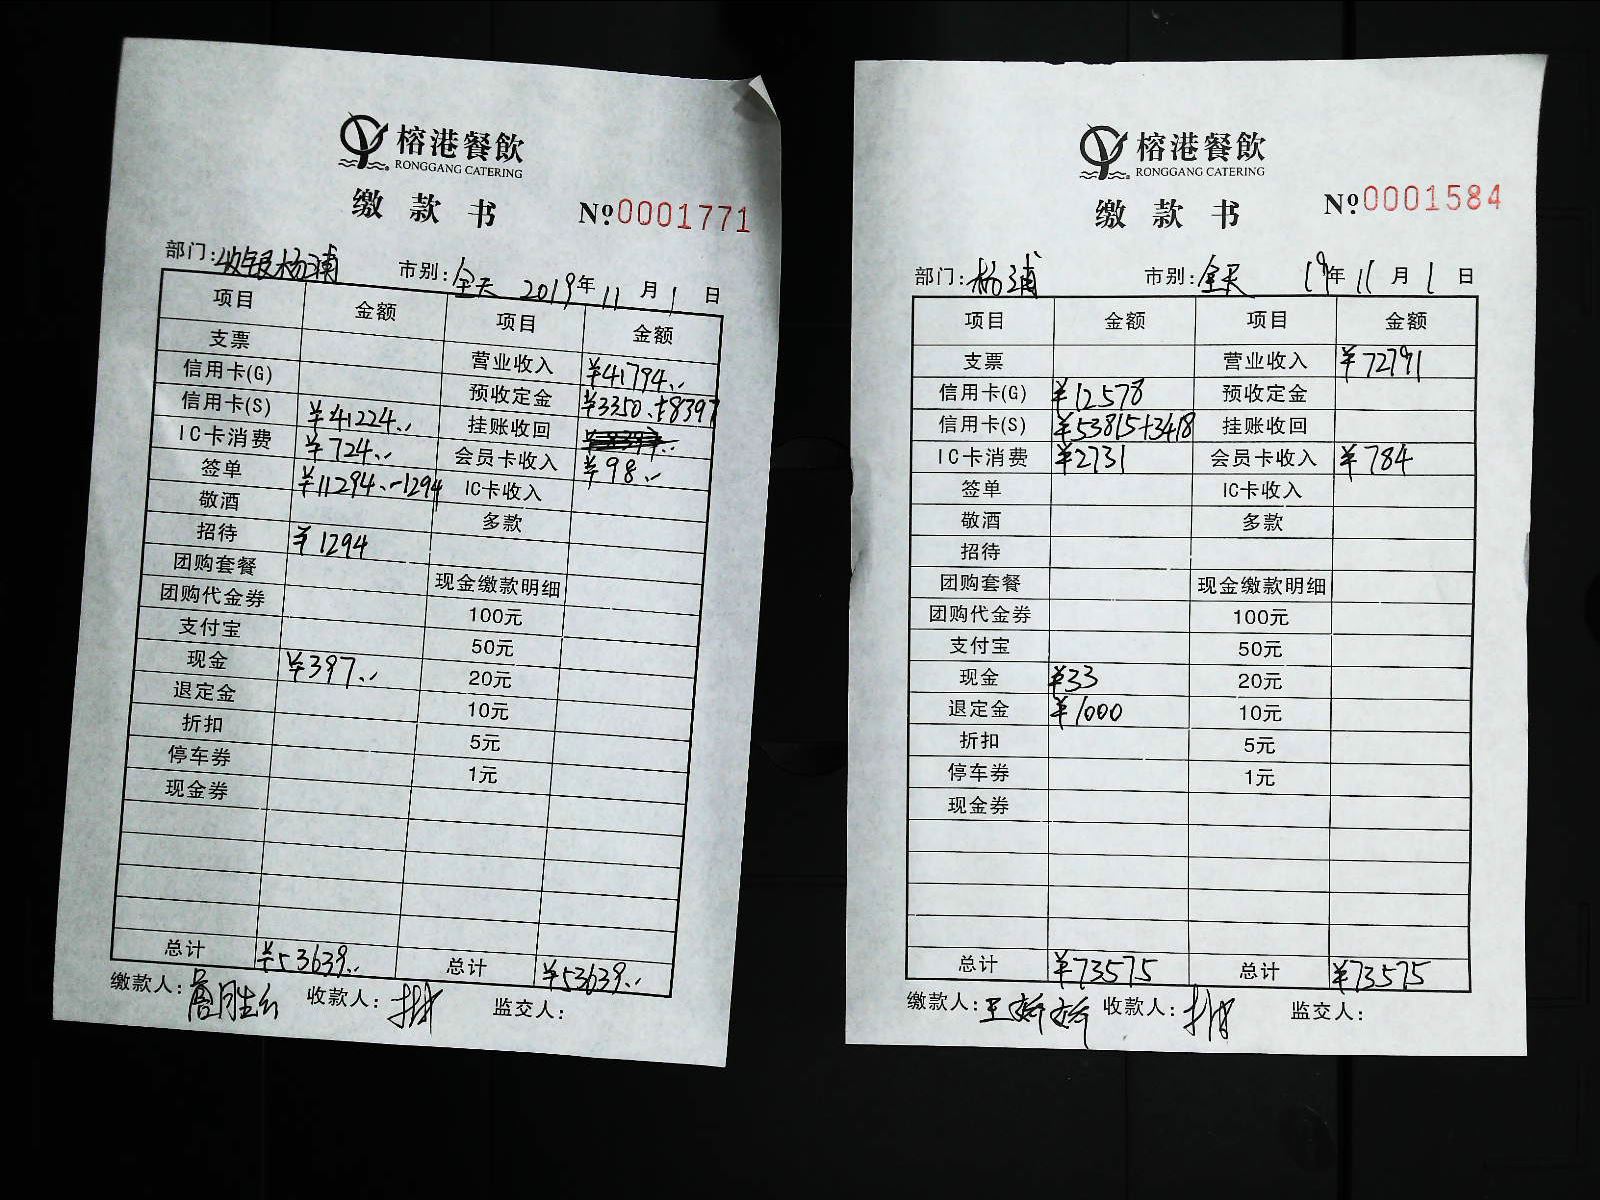 榕港餐飲
RONGGANG CATERING
缴款书 №0001771
部门:收银杨浦 市别:全天 2019年11月1日
项目 金额 项目 金额
支票 营业收入 ¥41794.
信用卡(G) 预收定金 ¥3350.+8397
信用卡(S) ¥41224. 挂账收回
IC卡消费 ¥724. 会员卡收入 ¥98.
签单 ¥11294.-1294 IC卡收入
敬酒 多款
招待 ¥1294
团购套餐 现金缴款明细
团购代金券 100元
支付宝 50元
现金 ¥397. 20元
退定金 10元
折扣 5元
停车券 1元
现金券
总计 ¥53639. 总计 ¥53639.
缴款人: 收款人: 监交人:
榕港餐飲
RONGGANG CATERING
缴款书 №0001584
部门:杨浦 市别:全天 19年11月1日
项目 金额 项目 金额
支票 营业收入 ¥72791
信用卡(G) ¥12578 预收定金
信用卡(S) ¥53815+3418 挂账收回
IC卡消费 ¥2731 会员卡收入 ¥784
签单 IC卡收入
敬酒 多款
招待
团购套餐 现金缴款明细
团购代金券 100元
支付宝 50元
现金 ¥33 20元
退定金 ¥1000 10元
折扣 5元
停车券 1元
现金券
总计 ¥73575 总计 ¥73575
缴款人:王娇娇 收款人: 监交人: